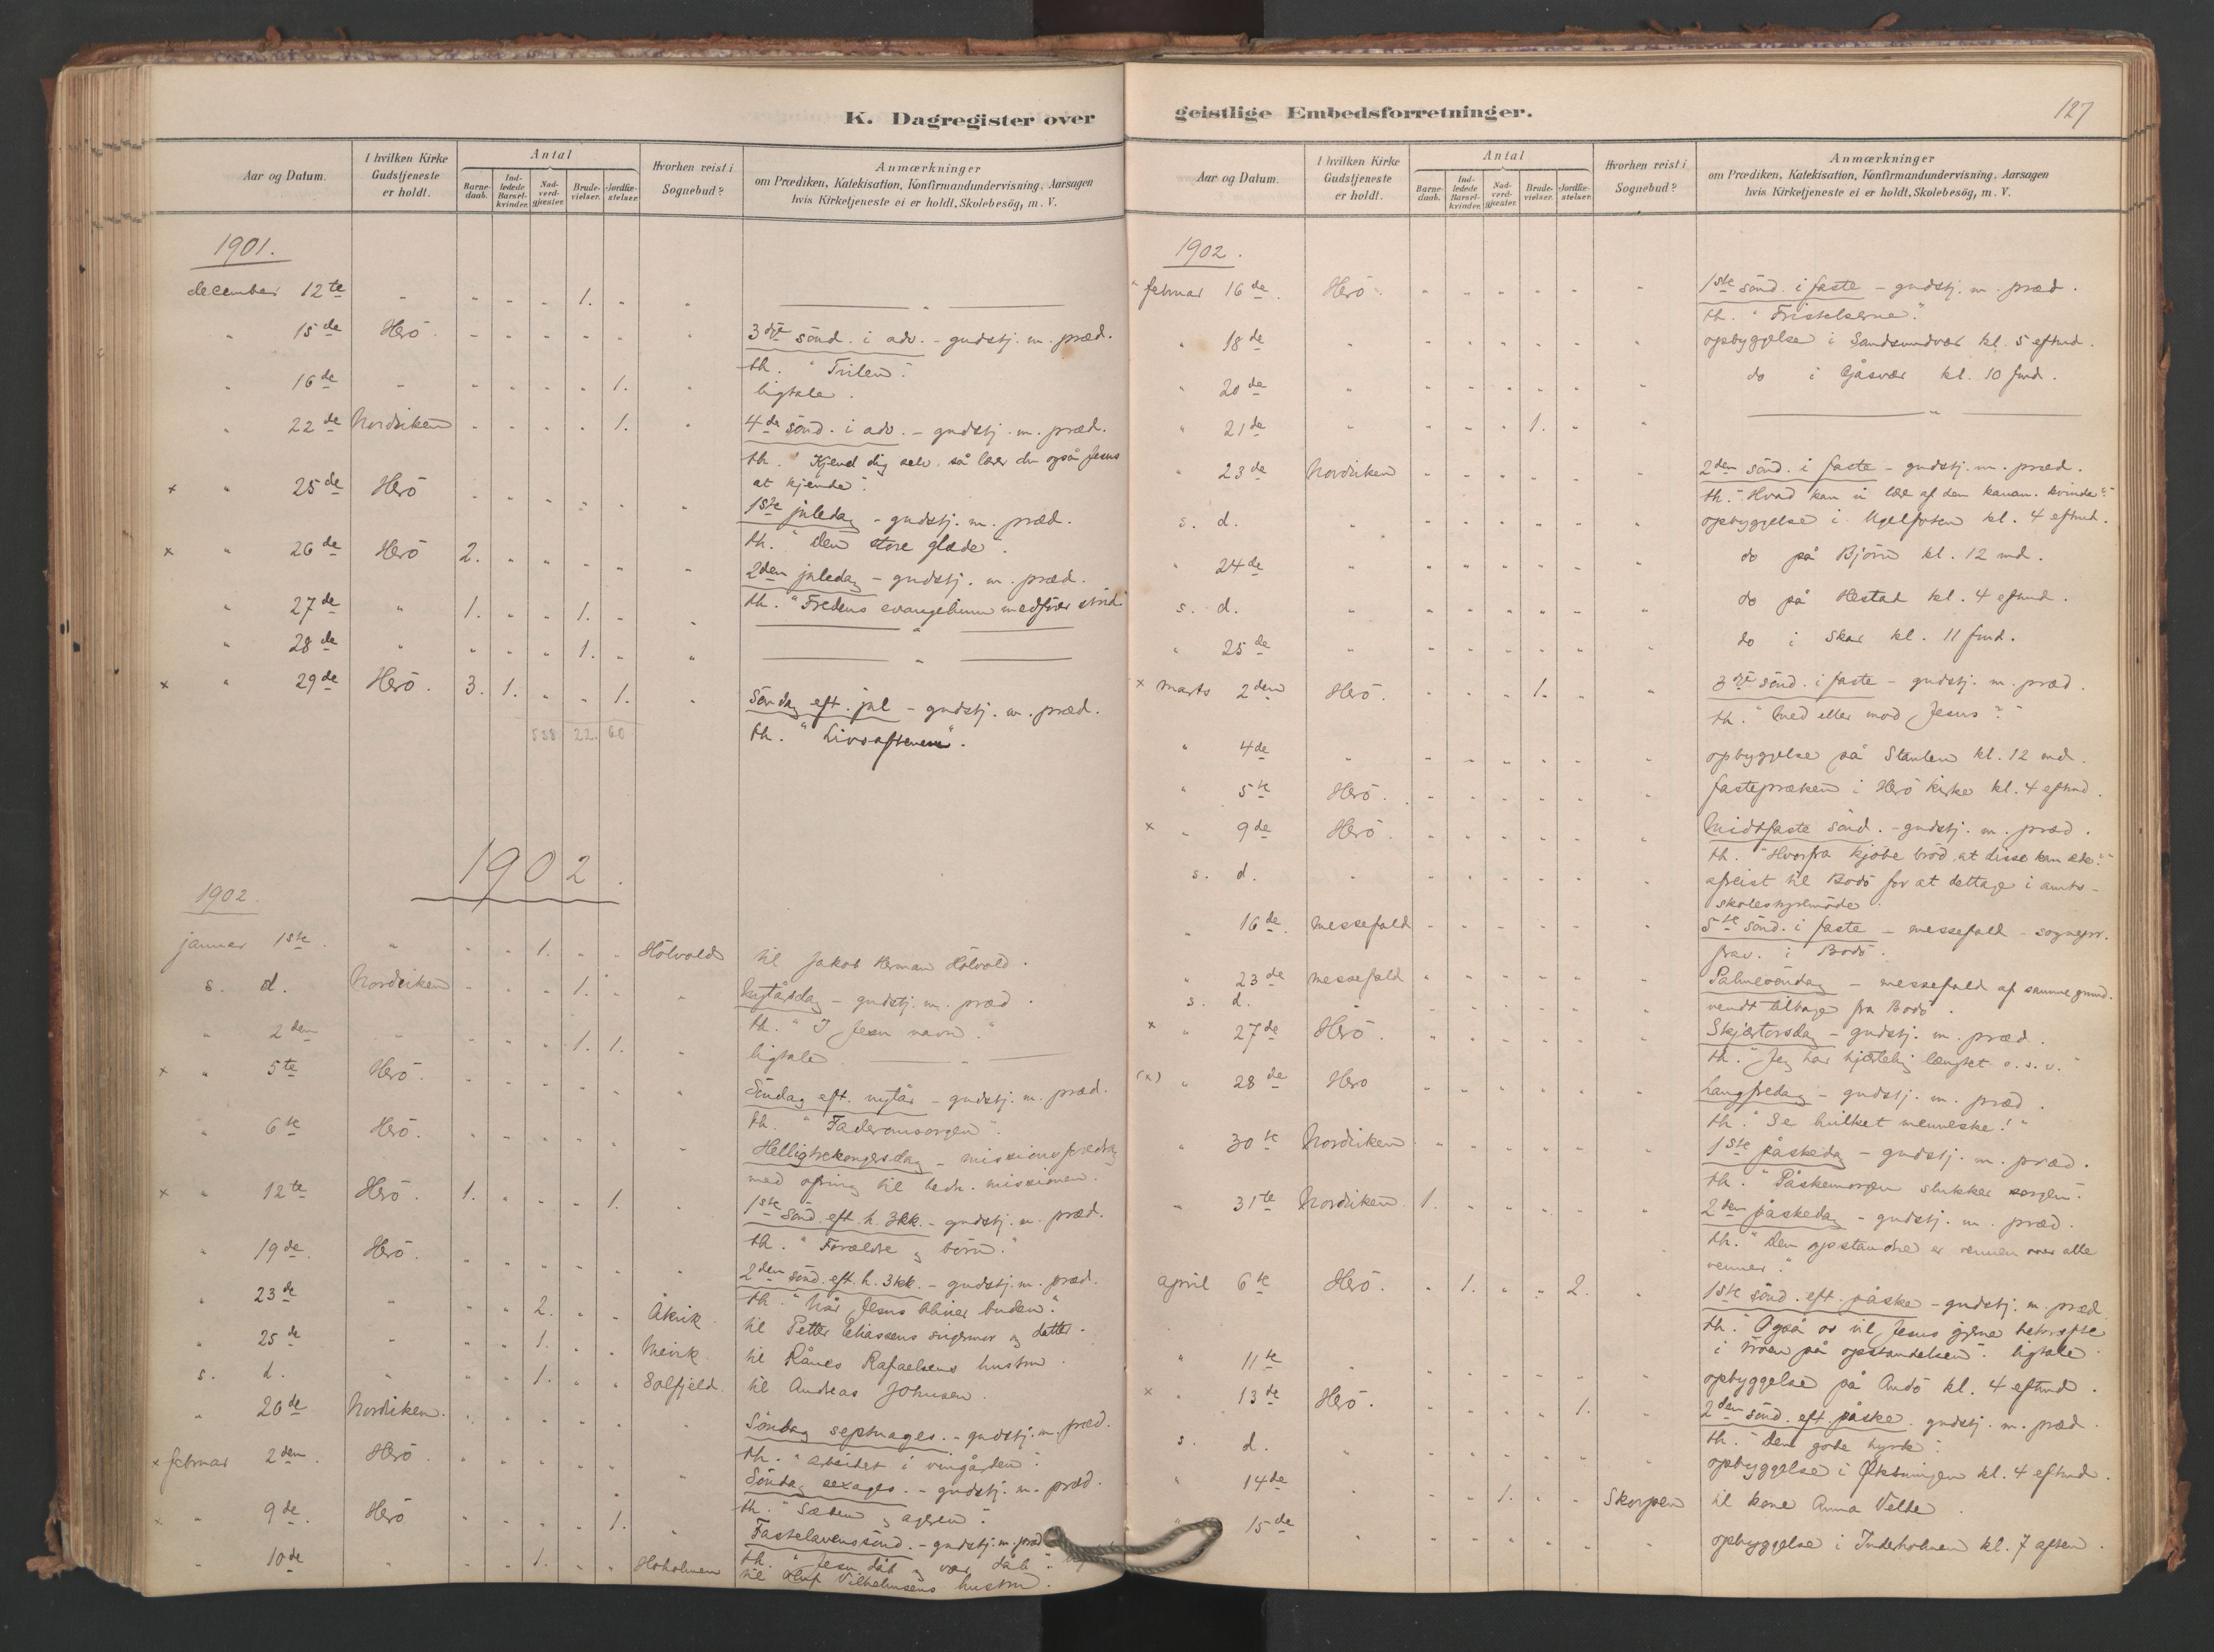 K. Dagregister over
Aar og Datum. I hvilken Kirke Gudstjeneste er holdt. Antal Barne-daab. Ind-ledede Barsel-kvinder. Nad-verd-gjæster. Brude-vielser. Jordfæ-stelser. Hvorhen reist i Sognebud? Anmærkninger om Prædiken, Katekisation, Konfirmandundervisning, Aarsagen hvis Kirketjeneste ei er holdt, Skolebesög, m. V.
1901.
december 12te " " " " 1. " " "
" 15de Herö. " " " " " " 3die sönd. i adv. - gudstj. m. præd.
th. "Tvilen".
" 16de " " " " " 1. " ligtale.
" 22de Nordviken " " " " 1. " 4de sönd. i adv. - gudstj. m. præd.
th. "Kjend dig selv, så lærer du også Jesus
at kjende".
x " 25de Herö " " " " " " 1ste juledag - gudstj. m. præd.
th. "Den store glæde".
x " 26de Herö 2. " " " " " 2den juledag - gudstj. m. præd.
th. "Fredens evangelium medförer strid
" 27de " 1. " " 1. " " "
" 28de " " " " 1. " " "
x " 29de Herö. 3. 1. " " 1. " Söndag eft. jul - gudstj. m. præd.
th. "Livsaftenen".
558 22. 60
1902.
1902.
januar 1ste. " " " 1. " " Hölvold til Jakob Herman Hölvold.
s. d. Nordviken " " " 1. " " Nytårsdag - gudstj. m. præd.
th. "I Jesu navn."
" 2den " " " " 1. 1. " ligtale "
x " 5te Herö. " " " " " " Söndag eft. nytår - gudstj. m. præd.
th. "Faderomsorgen".
" 6te Herö. " " " " " " Helligtrekongersdag - missionsforedrag
med ofring til hedn. missionen.
x " 12te Herö. 1. " " " 1. " 1ste sönd. eft. h. 3kk. - gudstj. m. præd.
th. "Forældre og börn."
" 19de. Herö. " " " " " " 2den sönd. eft. h. 3kk. - gudstj. m. præd.
th. "Når Jesus bliver buden."
" 23de " " " 2. " " Åkvik. til Petter Eliassens svigermor og datter.
" 25de " " " 1. " " til Rånes Rafaelsens hustru.
s. d. " " " 1. " " Solfjeld. til Andreas Johnsen.
" 26de Nordviken. " " " " " " Söndag septuages. - gudstj. m. præd.
th. "Arbeidet i vingården".
x februar 2den. Herö. " " " " " " Söndag sexages. - gudstj. m. præd.
th. "Sæden og ageren".
x " 9de. Herö " " " " 1. " Fastelavenssönd. - gudstj. m. præd
th. "Jesu dåb og vor dåb".
" 10de " " " 1. " " Höholmen til Oluf Vilhelmsens hustru.
geistlige Embedsforretninger.
127
Aar og Datum. I hvilken Kirke Gudstjeneste er holdt. Antal Barne-daab. Ind-ledede Barsel-kvinder. Nad-verd-gjæster. Brude-vielser. Jordfæ-stelser. Hvorhen reist i Sognebud? Anmærkninger om Prædiken, Katekisation, Konfirmandundervisning, Aarsagen hvis Kirketjeneste ei er holdt, Skolebesög, m. V.
1902.
" februar 16de. Herö. " " " " " " 1ste sönd. i faste - gudstj. m. præd.
th. "Fristelserne".
" 18de " " " " " " " opbyggelse i Sandsundvær kl. 5 eftmd.
" 20de " " " " " " " do i Gåsvær kl. 10 fmd.
" 21de " " " " 1. " " "
" 23de Nordviken " " " " " " 2den sönd. i faste - gudstj. m. præd.
th. "Hvad kan vi lære af den kanan. kvinde?"
s. d. " " " " " " " opbyggelse i Ugelfoten kl. 4 eftmd.
" 24de " " " " " " " do på Björn kl. 12 md.
s. d. " " " " " " " do på Hestad kl. 4 eftmd.
" 25de " " " " " " " do i Skar kl. 11 fmd.
x marts 2den Herö. " " " 1. " " 3die sönd. i faste - gudstj. m. præd.
th. "Med eller mod Jesus?"
" 4de " " " " " " " opbyggelse på Stanlen kl. 12 md.
" 5te Herö. " " " " " " fastepræken i Herö kirke kl. 4 eftmd.
x " 9de Herö. " " " " " " Midtfaste sönd. - gudstj. m. præd.
th. "Hvorfra kjöbe bröd, at disse kan æde?"
s. d. " " " " " " " afreist til Bodö for at deltage i amts-
skolestyremöde.
" 16de. messefald " " " " " " 5te sönd. i faste - messefald - sognepr.
frav. i Bodö.
" 23de messefald " " " " " " Palmesöndag - messefald af samme grund.
s. d. " " " " " " " vendt tilbage fra Bodö.
x " 27de Herö. " " " " " " Skjærtorsdag - gudstj. m. præd.
th. "Jeg har hjertelig længtet o. s. v."
(x) " 28de Herö " " " " " " Langfredag - gudstj. m. præd.
th. "Se hvilket menneske!"
" 30te Nordviken. " " " " " " 1ste påskedag - gudstj. m. præd.
th. "Påskemorgen slukker sorgen".
" 31te Nordviken. 1. " " " " " 2den påskedag - gudstj. m. præd.
th. "Den opstandne er vennen over alle
venner."
april 6te Herö. " 1. " " 2. " 1ste sönd. eft. påske - gudstj. m. præd
th. "Også os vil Jesus gjerne bekræfte
i troen på opstandelsen". ligtale
" 11te " " " " " " " opbyggelse på Andö kl. 4 eftmd.
x " 13de Herö. " " " " 1. " 2den sönd. eft. påske. gudstj. m. præd.
th. "Den gode hyrde".
s. d. " " " " " " " opbyggelse i kl. 4 eftmd.
" 14de " " " 1. " " Skorpen til kone Anna Velde.
" 15de " " " " " " " opbyggelse i Inderholmen kl. 7 aften.